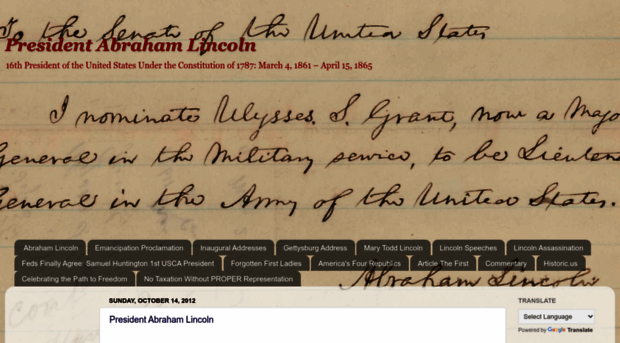 To the Senate of the United States
President Abraham Lincoln
16th President of the United States Under the Constitution of 1787: March 4, 1861 – April 15, 1865
I nominate Ulysses. S. Grant, now a Majo
General in the Military service, to be Lieuten
General in the Army of the United States.
Abraham Lincoln Emancipation Proclamation Inaugural Addresses Gettysburg Address Mary Todd Lincoln Lincoln Speeches Lincoln Assassination
Feds Finally Agree: Samuel Huntington 1st USCA President Forgotten First Ladies America's Four Republics Article The First Commentary Historic.us
Celebrating the Path to Freedom No Taxation Without PROPER Representation
Abraham Lincoln
SUNDAY, OCTOBER 14, 2012
President Abraham Lincoln
TRANSLATE
Select Language
Powered by Google Translate